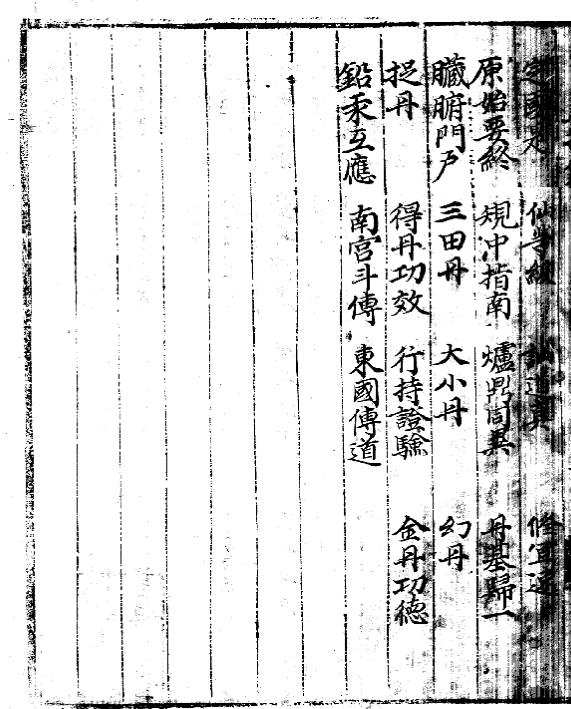 原始要終 規冲指南 爐鼎同異 丹基歸一
臓腑門戶 三田丹 大小丹 幻丹
捉丹 得丹功效 行持證驗 金丹功德
鉛汞互應 南宮斗傳 東國傳道